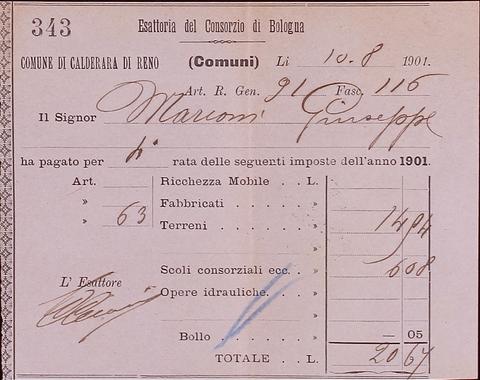 343
Esattoria del Consorzio di Bologna
COMUNE DI CALDERARA DI RENO (Comuni) Li 10.8 1901.
Art. R. Gen. 91 Fasc. 116
Il Signor Marconi Giuseppe
ha pagato per 4ª rata delle seguenti imposte dell'anno 1901.
Art. Ricchezza Mobile . . L.
» Fabbricati . . . . »
» 63 Terreni . . . . » 14 94
Scoli consorziali ecc. . » 6 08
L' Esattore Opere idrauliche. . . »
Bollo . . » — 05
TOTALE . . L. 20 67